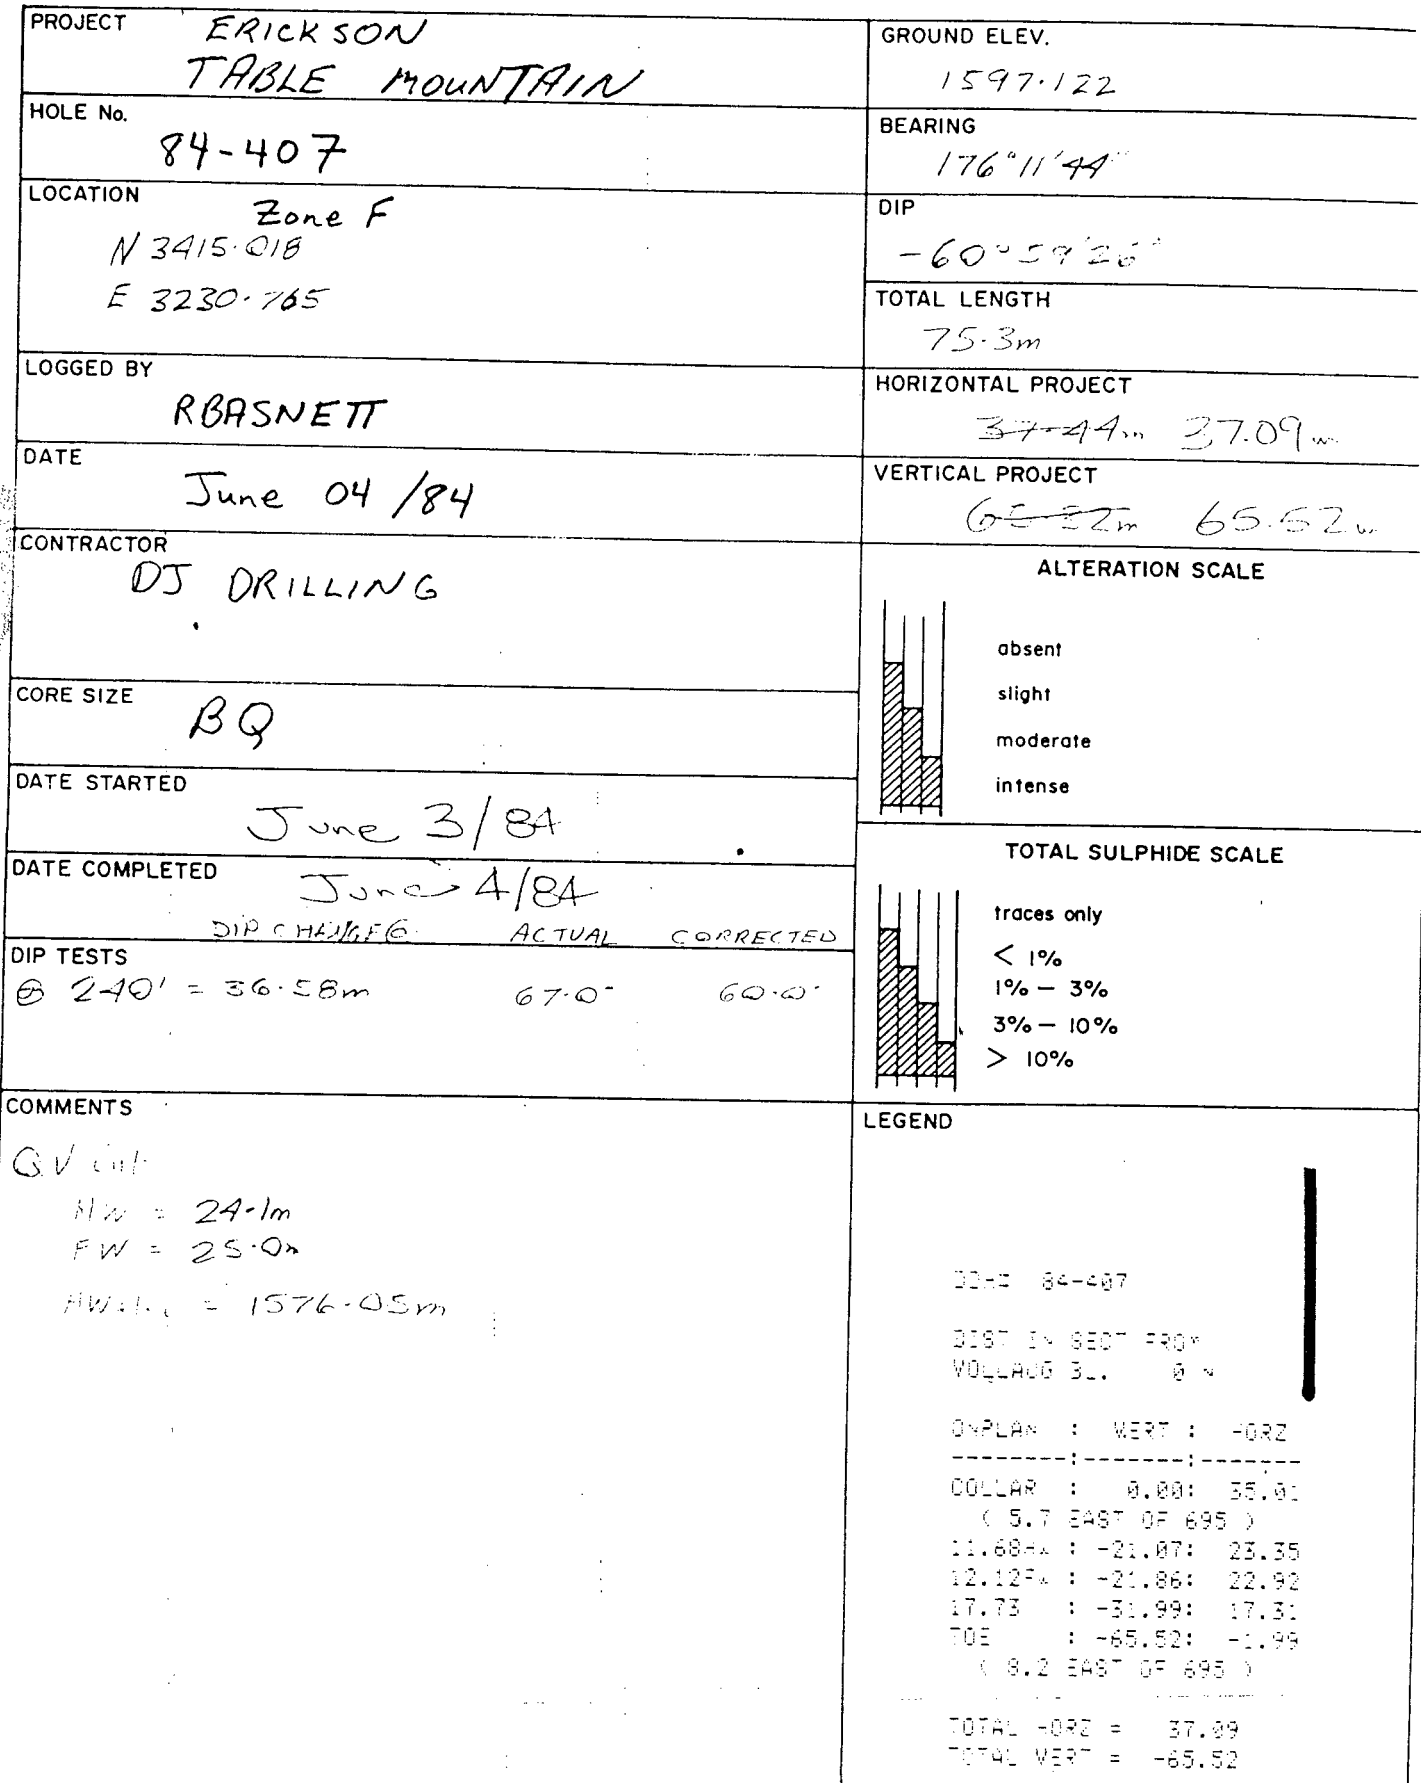 PROJECT ERICKSON
TABLE MOUNTAIN
HOLE No.
84-407
LOCATION Zone F
N 3415.018
E 3230.765
LOGGED BY
RBASNETT
DATE
June 04/84
CONTRACTOR
DJ DRILLING
CORE SIZE
BQ
DATE STARTED
June 3/84
DATE COMPLETED June 4/84
DIP CHANGE ACTUAL CORRECTED
DIP TESTS
@ 240' = 36.58m 67.0° 60.0°
COMMENTS
QV int
HW = 24.1m
FW = 25.0m
= 1576.05m
GROUND ELEV.
1597.122
BEARING
176°11'44"
DIP
-60°59'26"
TOTAL LENGTH
75.3m
HORIZONTAL PROJECT
37.44m 37.09m
VERTICAL PROJECT
65.52m
ALTERATION SCALE
absent
slight
moderate
intense
TOTAL SULPHIDE SCALE
traces only
< 1%
1% – 3%
3% – 10%
> 10%
LEGEND
DDH# 84-407
DIST IN SECT FROM
VOLLAUG BL. 0 N
ONPLAN : VERT : HORZ
--------:-------:-------
COLLAR : 0.00: 35.01
( 5.7 EAST OF 695 )
11.68HW : -21.07: 23.35
12.12FW : -21.86: 22.92
17.73 : -31.99: 17.31
TOE : -65.52: -1.99
( 8.2 EAST OF 695 )
TOTAL HORZ = 37.09
TOTAL VERT = -65.52